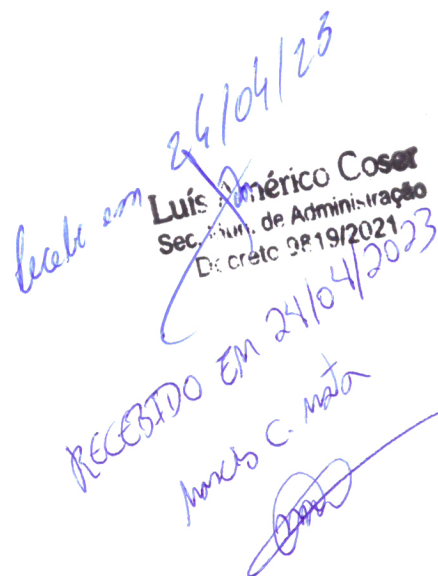 Recebi em 24/04/23
Luís Américo Coser
Sec. Mun. de Administração
Decreto 9819/2021
RECEBIDO EM 24/04/2023
C. Mata